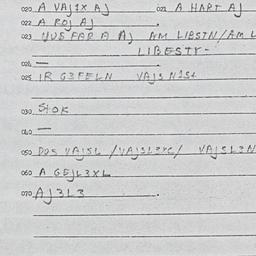 020 A VAJ1X AJ 021 A HART AJ
022 A ROJ AJ
023 AJ AM LIBSTN/AM L
LIBESTN-
024 —
025 IR G3FELN VAJS N1St
030 StOK
040 —
050 DOS VAJSL /VAJSL3XL/ VAJSL3N
060 A GEJL3XL
070 AJ3L3